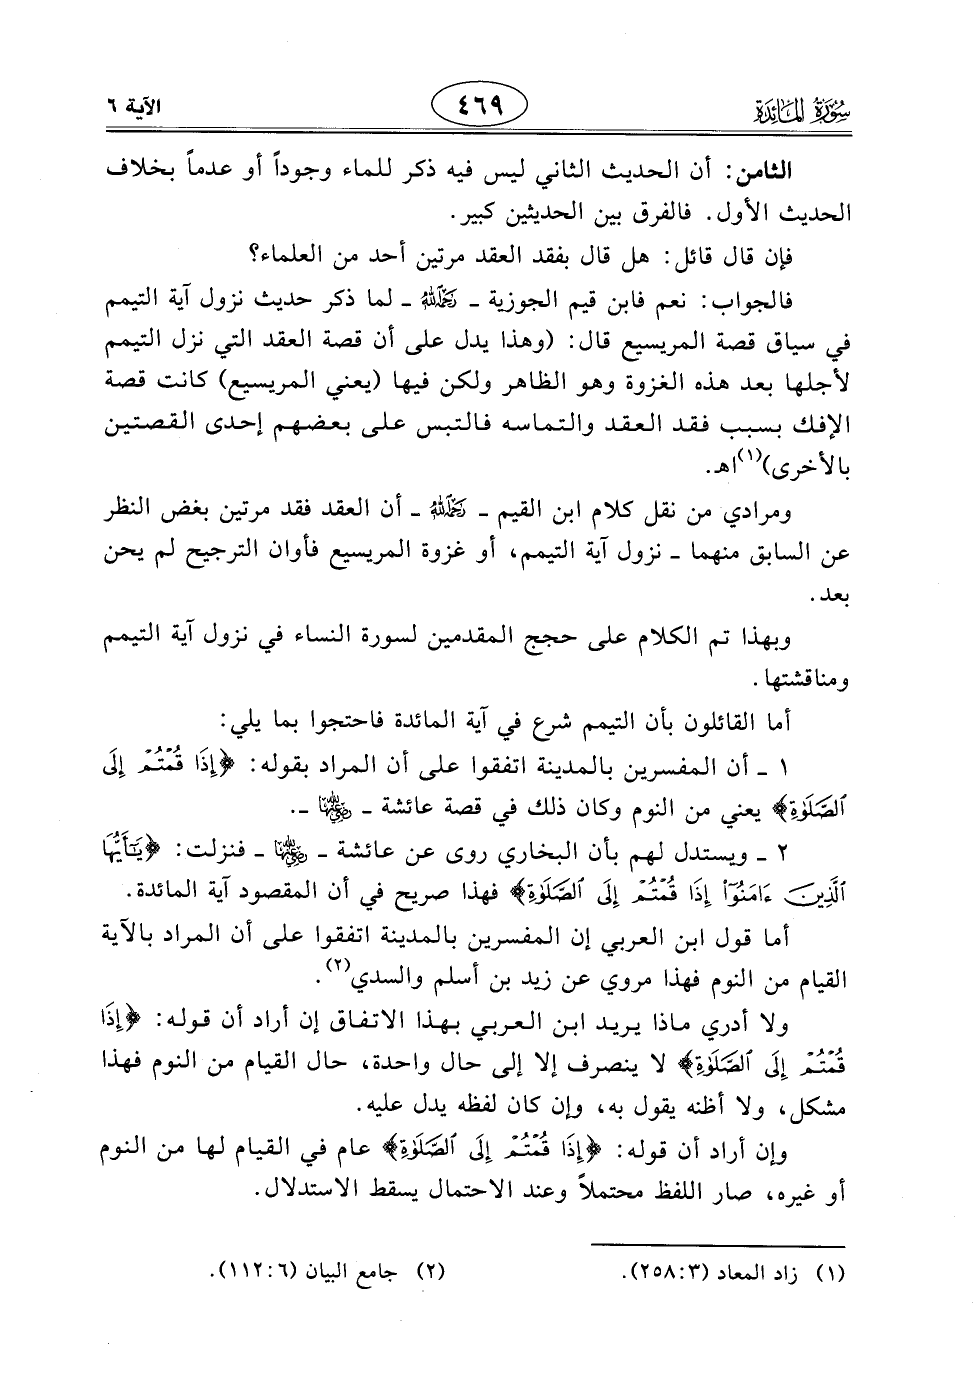 سورة المائدة ٤٦٩ الآية ٦
الثامن: أن الحديث الثاني ليس فيه ذكر للماء وجوداً أو عدماً بخلاف
الحديث الأول. فالفرق بين الحديثين كبير.
فإن قال قائل: هل قال بفقد العقد مرتين أحد من العلماء؟
فالجواب: نعم فابن قيم الجوزية ـ رحمه الله ـ لما ذكر حديث نزول آية التيمم
في سياق قصة المريسيع قال: (وهذا يدل على أن قصة العقد التي نزل التيمم
لأجلها بعد هذه الغزوة وهو الظاهر ولكن فيها (يعني المريسيع) كانت قصة
الإفك بسبب فقد العقد والتماسه فالتبس على بعضهم إحدى القصتين
بالأخرى)(١)اهـ.
ومرادي من نقل كلام ابن القيم ـ رحمه الله ـ أن العقد فقد مرتين بغض النظر
عن السابق منهما ـ نزول آية التيمم، أو غزوة المريسيع فأوان الترجيح لم يحن
بعد.
وبهذا تم الكلام على حجج المقدمين لسورة النساء في نزول آية التيمم
ومناقشتها.
أما القائلون بأن التيمم شرع في آية المائدة فاحتجوا بما يلي:
١ ـ أن المفسرين بالمدينة اتفقوا على أن المراد بقوله: ﴿إِذَا قُمْتُمْ إِلَى
ٱلصَّلَوٰةِ﴾ يعني من النوم وكان ذلك في قصة عائشة ـ رضي الله عنها ـ.
٢ ـ ويستدل لهم بأن البخاري روى عن عائشة ـ رضي الله عنها ـ فنزلت: ﴿يَٰٓأَيُّهَا
ٱلَّذِينَ ءَامَنُوٓا۟ إِذَا قُمْتُمْ إِلَى ٱلصَّلَوٰةِ﴾ فهذا صريح في أن المقصود آية المائدة.
أما قول ابن العربي إن المفسرين بالمدينة اتفقوا على أن المراد بالآية
القيام من النوم فهذا مروي عن زيد بن أسلم والسدي(٢).
ولا أدري ماذا يريد ابن العربي بهذا الاتفاق إن أراد أن قوله: ﴿إِذَا
قُمْتُمْ إِلَى ٱلصَّلَوٰةِ﴾ لا ينصرف إلا إلى حال واحدة، حال القيام من النوم فهذا
مشكل، ولا أظنه يقول به، وإن كان لفظه يدل عليه.
وإن أراد أن قوله: ﴿إِذَا قُمْتُمْ إِلَى ٱلصَّلَوٰةِ﴾ عام في القيام لها من النوم
أو غيره، صار اللفظ محتملاً وعند الاحتمال يسقط الاستدلال.
(١) زاد المعاد (٣:٢٥٨). (٢) جامع البيان (٦:١١٢).